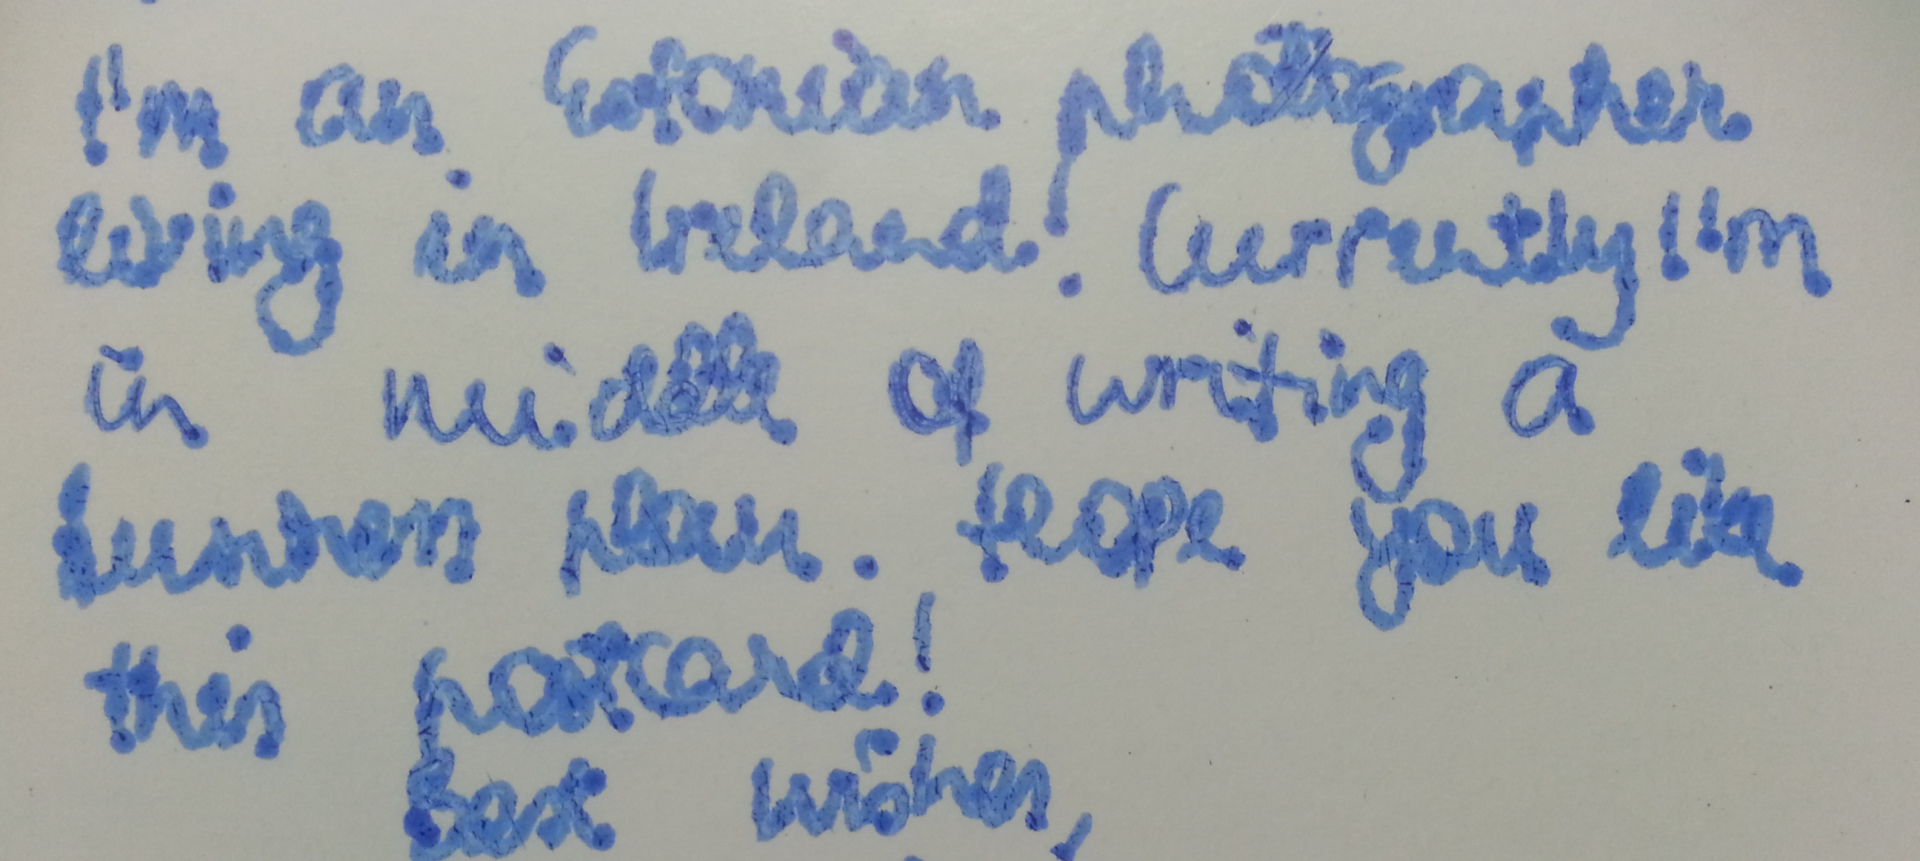 I'm an Estonian photographer
living in Ireland. Currently I'm
in middle of writing a
business plan. Hope you like
this postcard!
Best wishes,